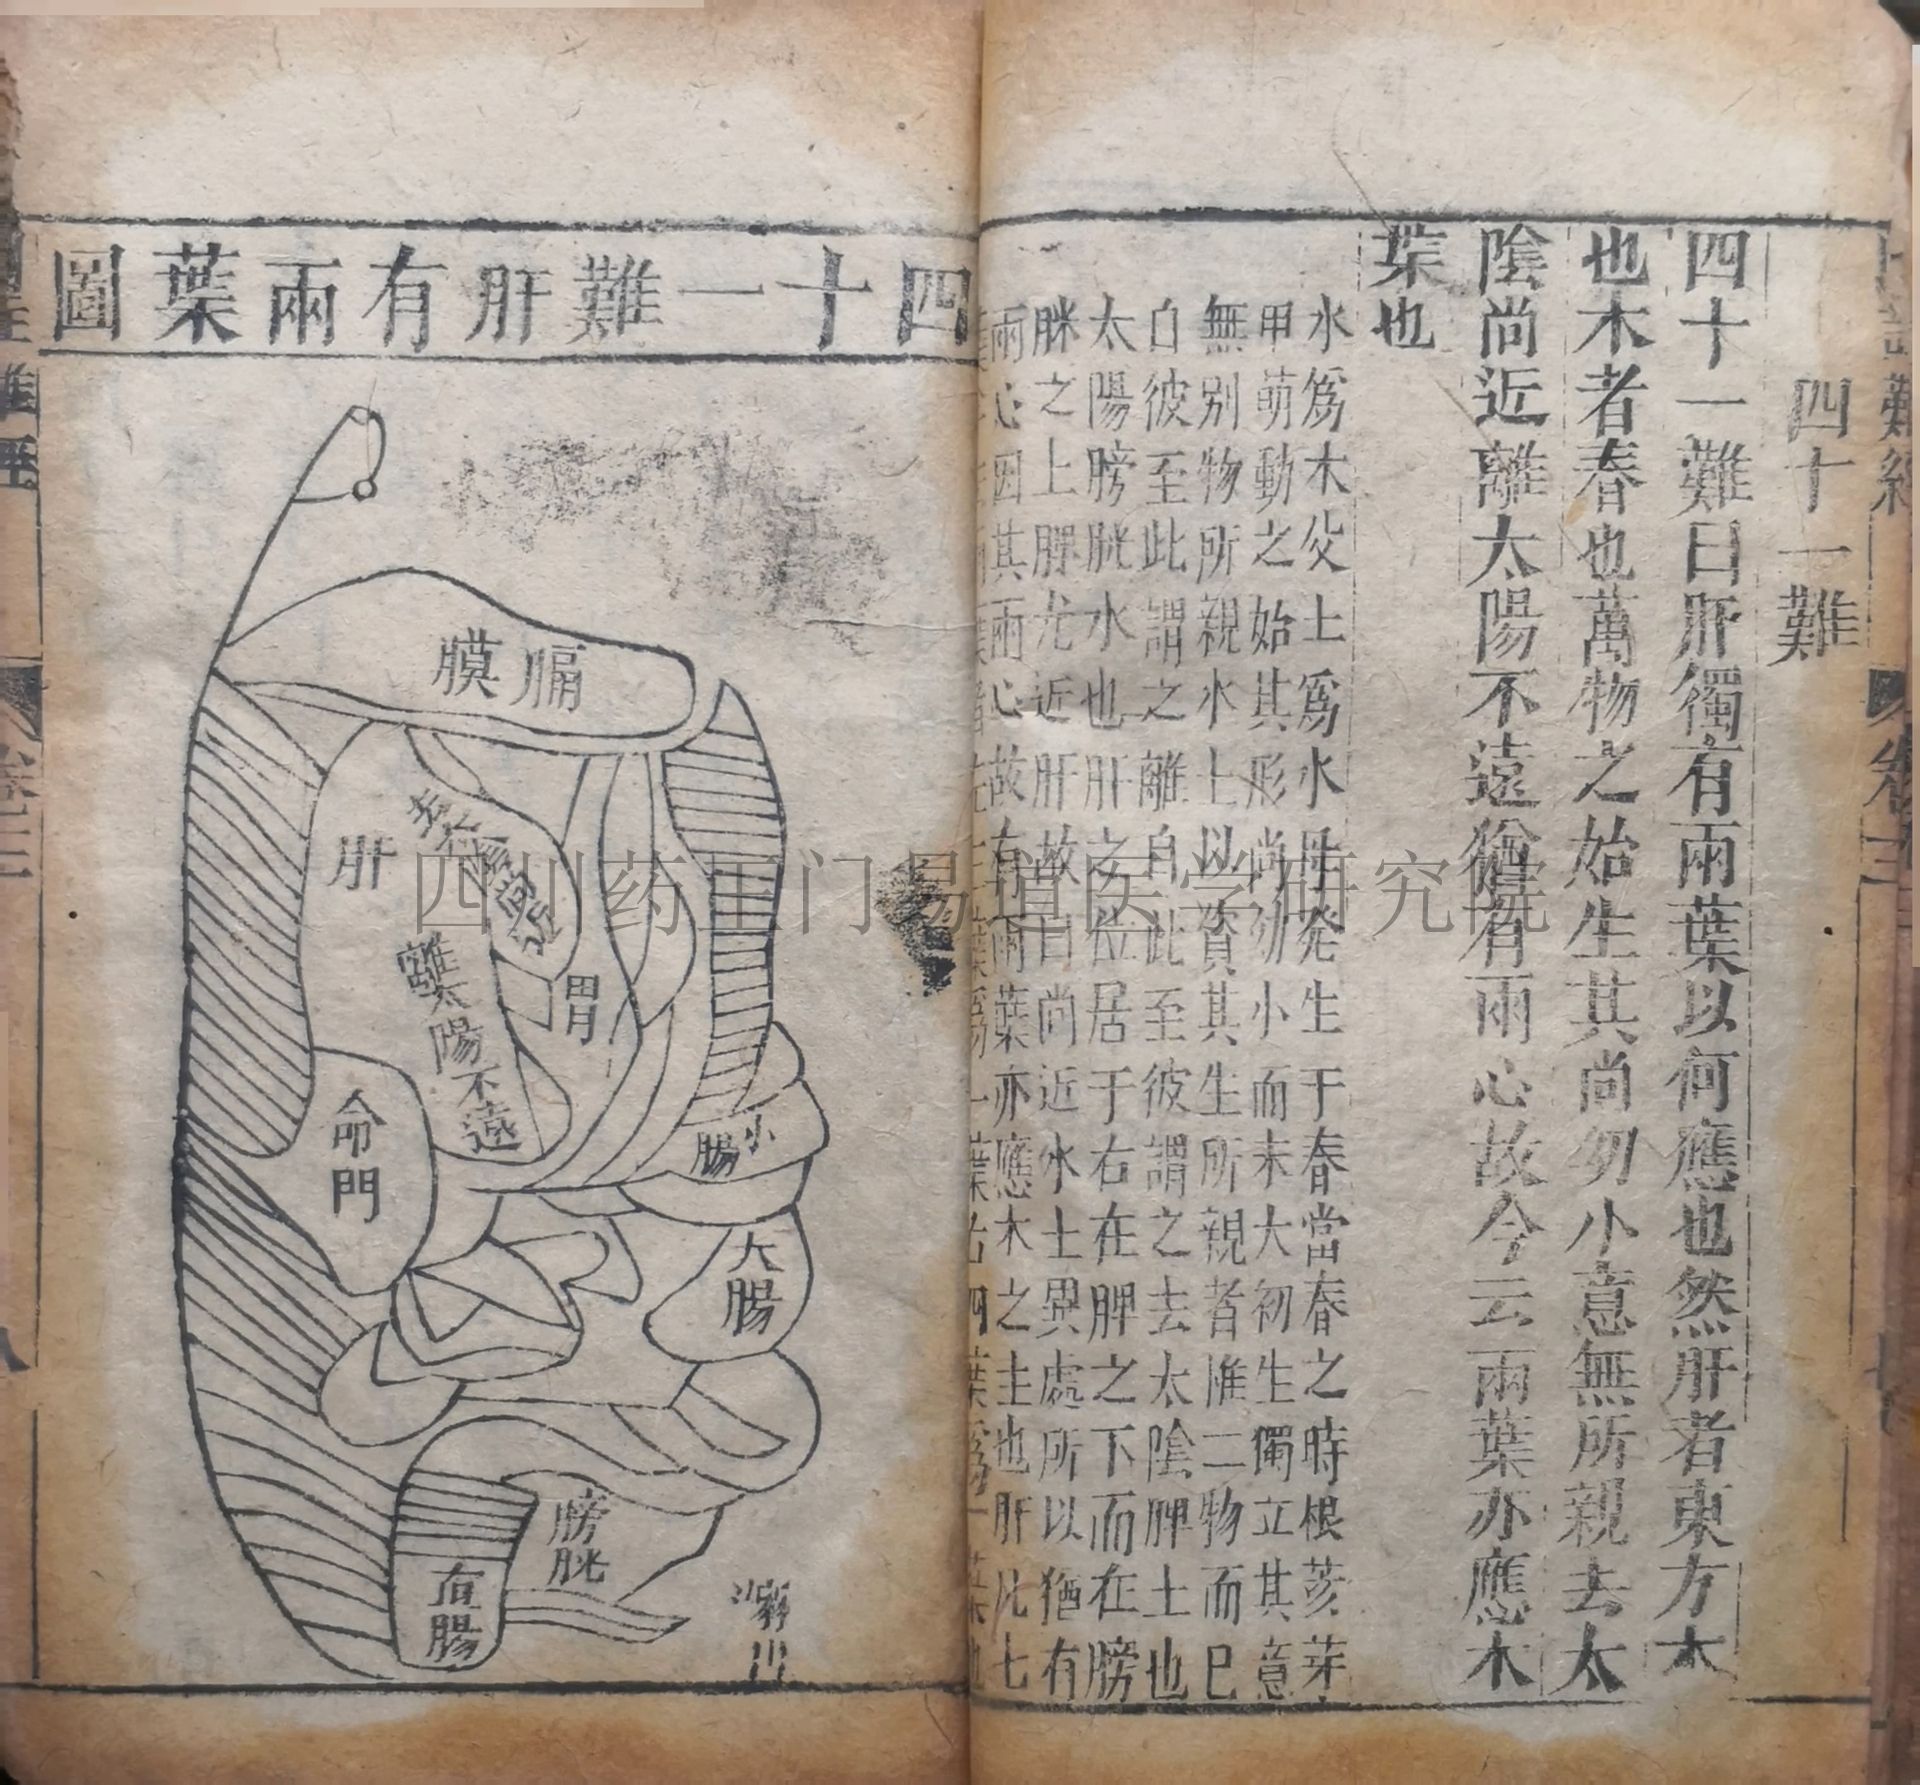 四十一難
四十一難曰肝獨有兩葉以何應也然肝者東方木
也木者春也萬物之始生其尚幼小意無所親去太
陰尚近離太陽不遠猶有兩心故今云兩葉亦應木
葉也
水爲木父土爲水母発生于春當春之時根荄芽
甲萌動之始其形尚幼小而未大初生獨立其意
無別物所親水土以資其生所親者惟二物而已
自彼至此謂之離自此至彼謂之去太陰脾土也
太陽膀胱水也肝之位居于右在脾之下而在膀
胱之上脾尤近肝故曰尚近水土異處所以猶有
兩心因其兩心故有兩葉亦應木之主也肝凡七
四十一難肝有兩葉圖
膈膜
肝
去太陰尚近
離太陽不遠
胃
命門
小腸
大腸
膀胱
直腸
四川药王门易道医学研究院